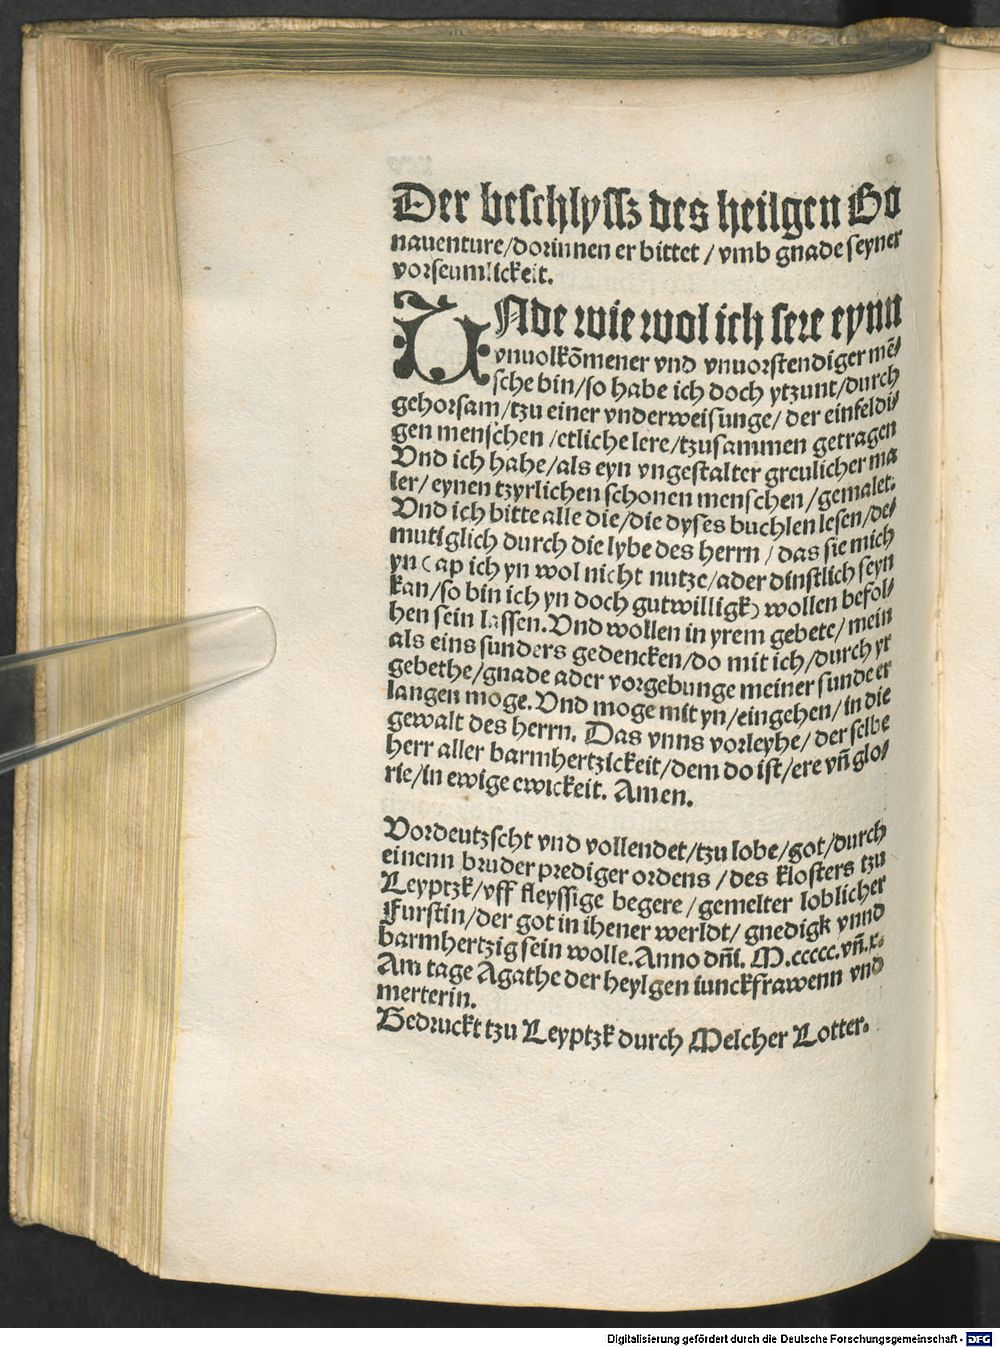 Der beschlyssz des heilgen Bo
nauenture/dorinnen er bittet / vmb gnade seyner
vorseumlickeit.
VNde wie wol ich sere eynn
vnuolkõmener vnd vnuorstendiger mẽ/
sche bin/so habe ich doch ytzunt/durch
gehorsam/tzu einer vnderweisunge/ der einfeldi/
gen menschen /etliche lere/tzusammen getragen
Vnd ich habe/als eyn vngestalter greulicher ma
ler/ eynen tzyrlichen schonen menschen/gemalet.
Vnd ich bitte alle die/die dyses buchlen lesen/de/
mutiglich durch die lybe des herrn / das sie mich
yn ap ich yn wol nicht nutze/ader dinstlich seyn
kan/so bin ich yn doch gutwilligk) wollen befol/
hen sein lassen.Vnd wollen in yrem gebete/ mein
als eins sunders gedencken/do mit ich/durch yr
gebethe/gnade ader vorgebunge meiner sunde er
langen moge.Vnd moge mit yn/eingehen/in die
gewalt des herrn. Das vnns vorleyhe/ der selbe
herr aller barmhertzickeit/dem do ist/ere vñ glo/
rie/in ewige ewickeit. Amen.
Vordeutzscht vnd vollendet/tzu lobe/got/durch
einenn bruder prediger ordens /des klosters tzu
Leyptzk/vff fleyssige begere/gemelter loblicher
Furstin/der got in ihener werldt/ gnedigk vnnd
barmhertzig sein wolle.Anno dñi. M.ccccc.vñ.x.
Am tage Agathe der heylgen iunckfrawenn vnd
merterin.
Gedruckt tzu Leyptzk durch Melcher Lotter.
Digitalisierung gefördert durch die Deutsche Forschungsgemeinschaft - DFG